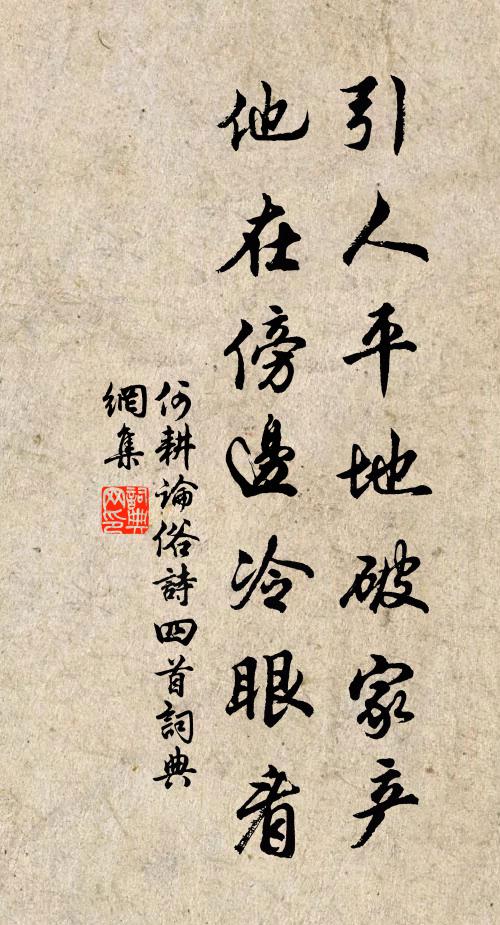 引人平地破家产
他在傍邊冷眼看
何耕論俗詩四首詞典
網集
詞典
网印